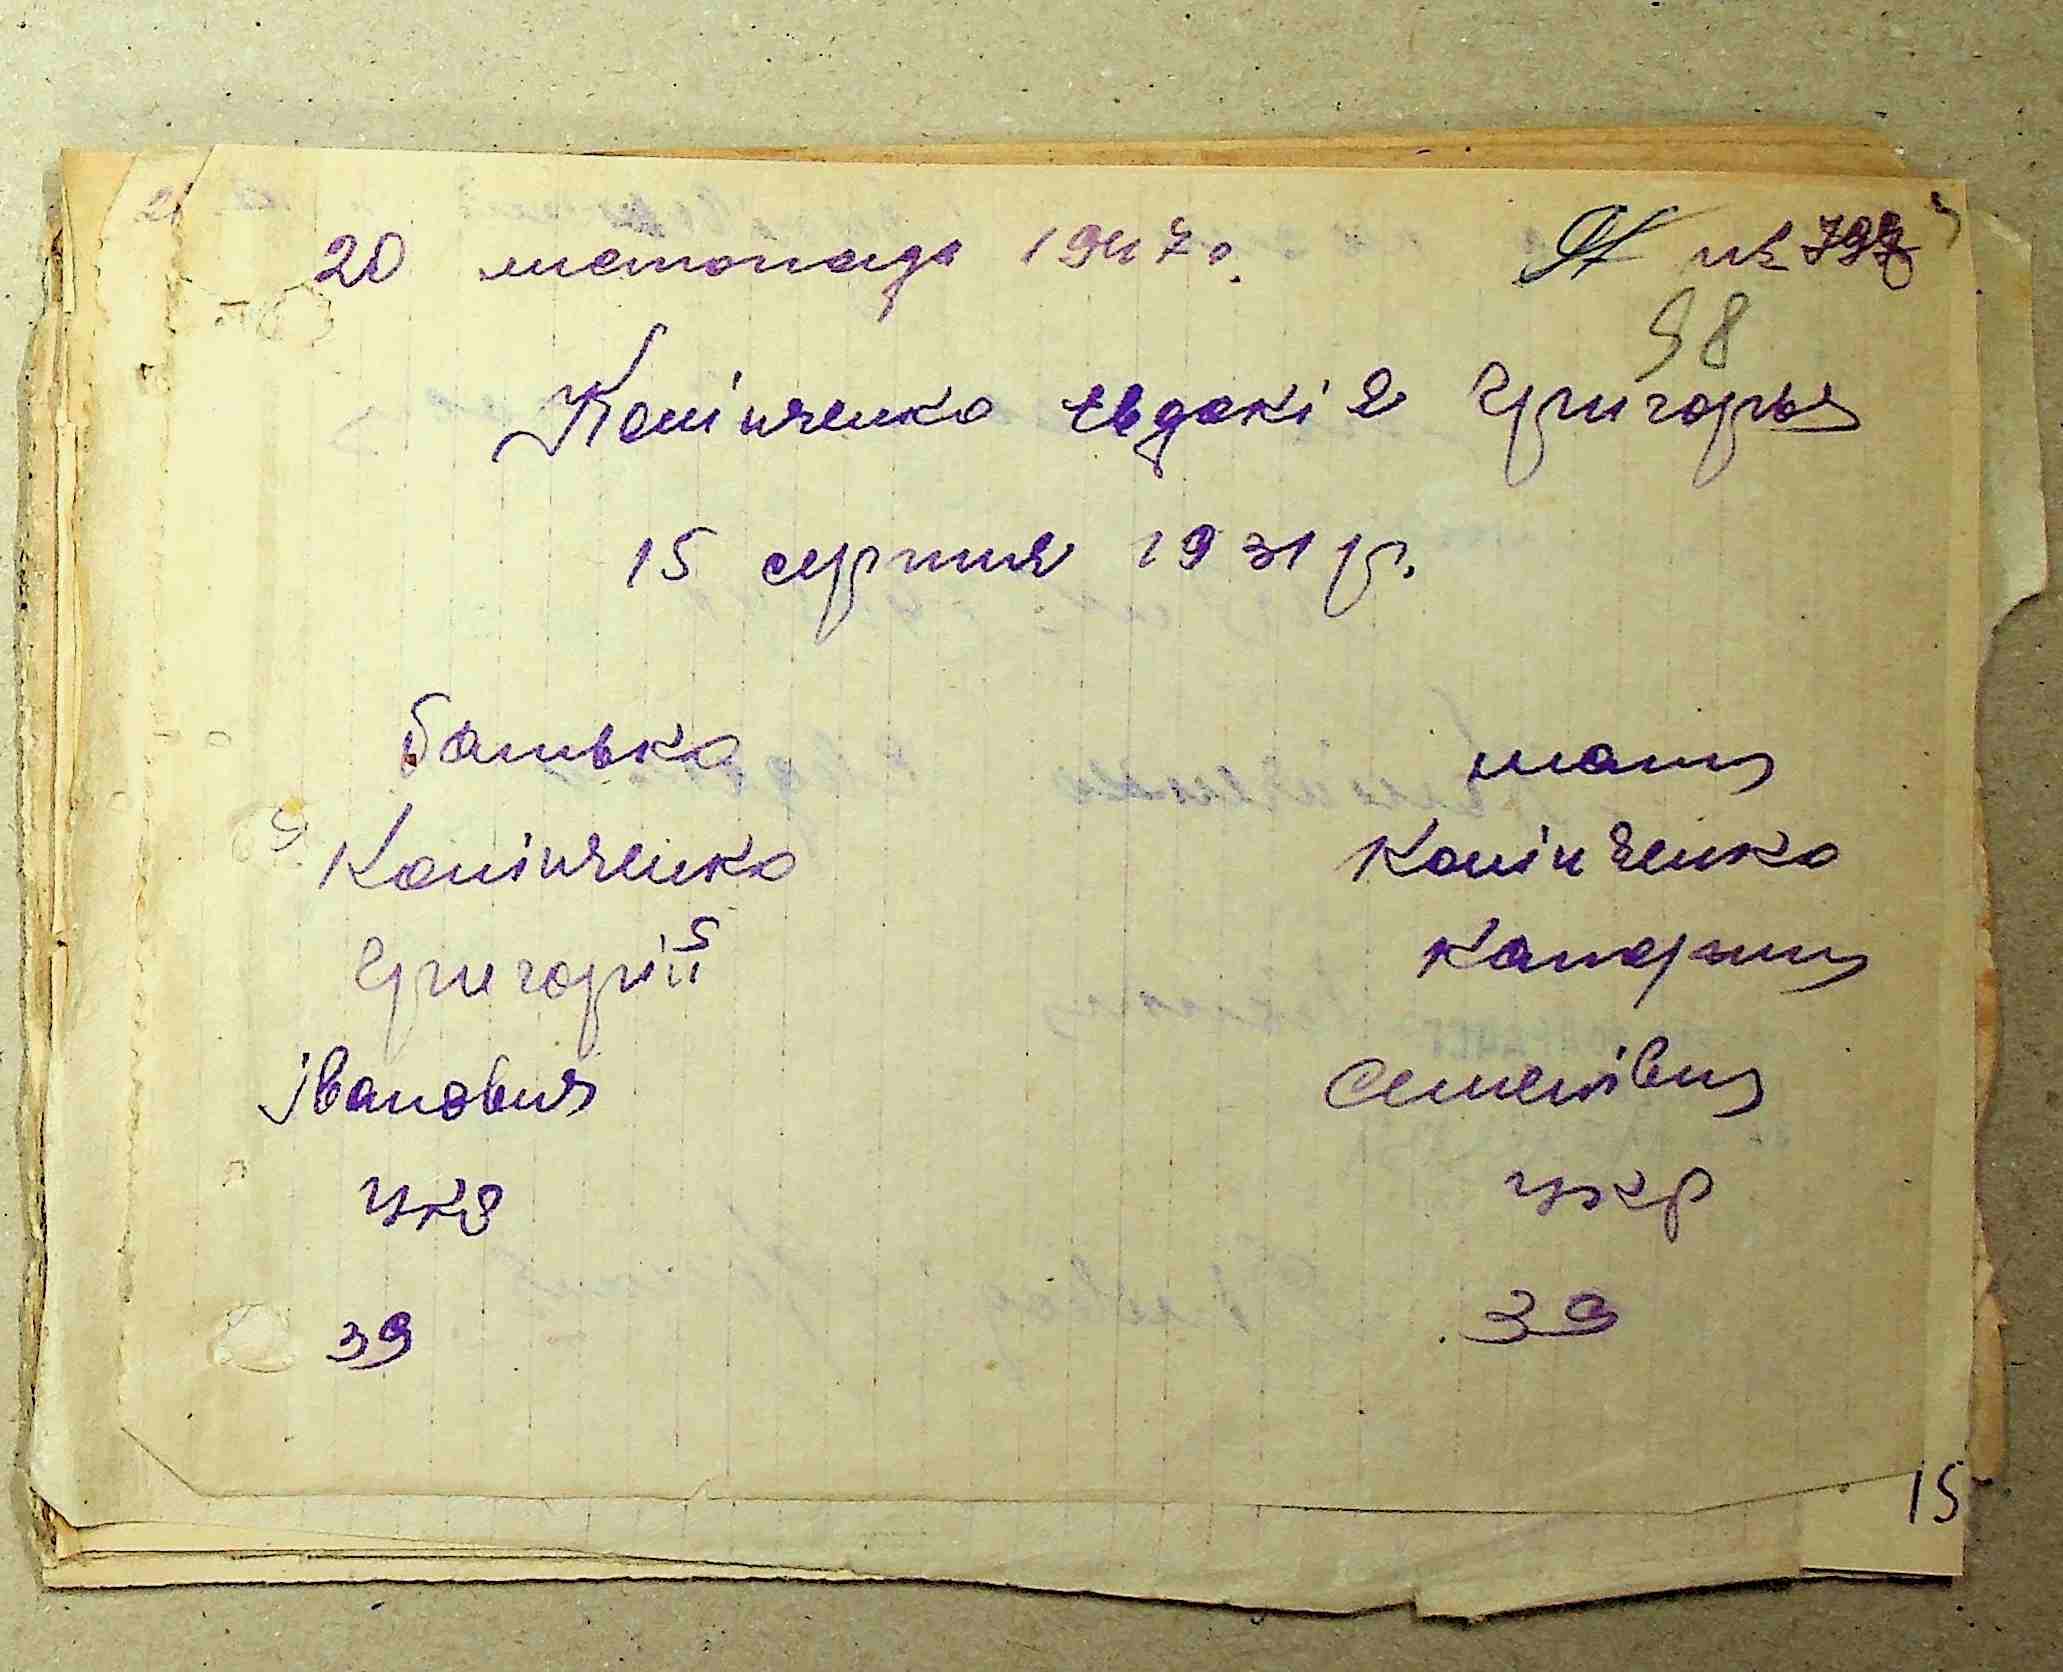 20 листопада 1947 р. № 797
98
Копійченко Євдокія Григорья
15 серпня 1931 р.
батько мати
Копійченко Копійченко
Григорій Катерина
Іванович Семенівна
укр укр
39 39
15